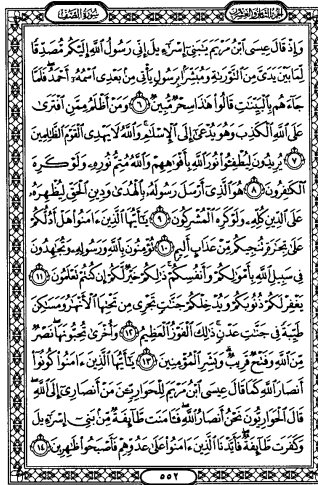 سُورَةُ الصَّفِّ
الجُزءُ الثَّامِنُ وَالعِشرُونَ
وَإِذْ قَالَ عِيسَى ٱبْنُ مَرْيَمَ يَٰبَنِىٓ إِسْرَٰٓءِيلَ إِنِّى رَسُولُ ٱللَّهِ إِلَيْكُم مُّصَدِّقًا
لِّمَا بَيْنَ يَدَىَّ مِنَ ٱلتَّوْرَىٰةِ وَمُبَشِّرًۢا بِرَسُولٍ يَأْتِى مِنۢ بَعْدِى ٱسْمُهُۥٓ أَحْمَدُ ۖ فَلَمَّا
جَآءَهُم بِٱلْبَيِّنَٰتِ قَالُوا۟ هَٰذَا سِحْرٌ مُّبِينٌ ٦ وَمَنْ أَظْلَمُ مِمَّنِ ٱفْتَرَىٰ
عَلَى ٱللَّهِ ٱلْكَذِبَ وَهُوَ يُدْعَىٰٓ إِلَى ٱلْإِسْلَٰمِ ۚ وَٱللَّهُ لَا يَهْدِى ٱلْقَوْمَ ٱلظَّٰلِمِينَ
٧ يُرِيدُونَ لِيُطْفِـُٔوا۟ نُورَ ٱللَّهِ بِأَفْوَٰهِهِمْ وَٱللَّهُ مُتِمُّ نُورِهِۦ وَلَوْ كَرِهَ
ٱلْكَٰفِرُونَ ٨ هُوَ ٱلَّذِىٓ أَرْسَلَ رَسُولَهُۥ بِٱلْهُدَىٰ وَدِينِ ٱلْحَقِّ لِيُظْهِرَهُۥ
عَلَى ٱلدِّينِ كُلِّهِۦ وَلَوْ كَرِهَ ٱلْمُشْرِكُونَ ٩ يَٰٓأَيُّهَا ٱلَّذِينَ ءَامَنُوا۟ هَلْ أَدُلُّكُمْ
عَلَىٰ تِجَٰرَةٍ تُنجِيكُم مِّنْ عَذَابٍ أَلِيمٍ ١٠ تُؤْمِنُونَ بِٱللَّهِ وَرَسُولِهِۦ وَتُجَٰهِدُونَ
فِى سَبِيلِ ٱللَّهِ بِأَمْوَٰلِكُمْ وَأَنفُسِكُمْ ۚ ذَٰلِكُمْ خَيْرٌ لَّكُمْ إِن كُنتُمْ تَعْلَمُونَ ١١
يَغْفِرْ لَكُمْ ذُنُوبَكُمْ وَيُدْخِلْكُمْ جَنَّٰتٍ تَجْرِى مِن تَحْتِهَا ٱلْأَنْهَٰرُ وَمَسَٰكِنَ
طَيِّبَةً فِى جَنَّٰتِ عَدْنٍ ۚ ذَٰلِكَ ٱلْفَوْزُ ٱلْعَظِيمُ ١٢ وَأُخْرَىٰ تُحِبُّونَهَا ۖ نَصْرٌ
مِّنَ ٱللَّهِ وَفَتْحٌ قَرِيبٌ ۗ وَبَشِّرِ ٱلْمُؤْمِنِينَ ١٣ يَٰٓأَيُّهَا ٱلَّذِينَ ءَامَنُوا۟ كُونُوٓا۟
أَنصَارَ ٱللَّهِ كَمَا قَالَ عِيسَى ٱبْنُ مَرْيَمَ لِلْحَوَارِيِّـۧنَ مَنْ أَنصَارِىٓ إِلَى ٱللَّهِ ۖ
قَالَ ٱلْحَوَارِيُّونَ نَحْنُ أَنصَارُ ٱللَّهِ ۖ فَـَٔامَنَت طَّآئِفَةٌ مِّنۢ بَنِىٓ إِسْرَٰٓءِيلَ
وَكَفَرَت طَّآئِفَةٌ ۖ فَأَيَّدْنَا ٱلَّذِينَ ءَامَنُوا۟ عَلَىٰ عَدُوِّهِمْ فَأَصْبَحُوا۟ ظَٰهِرِينَ ١٤
٥٥٢